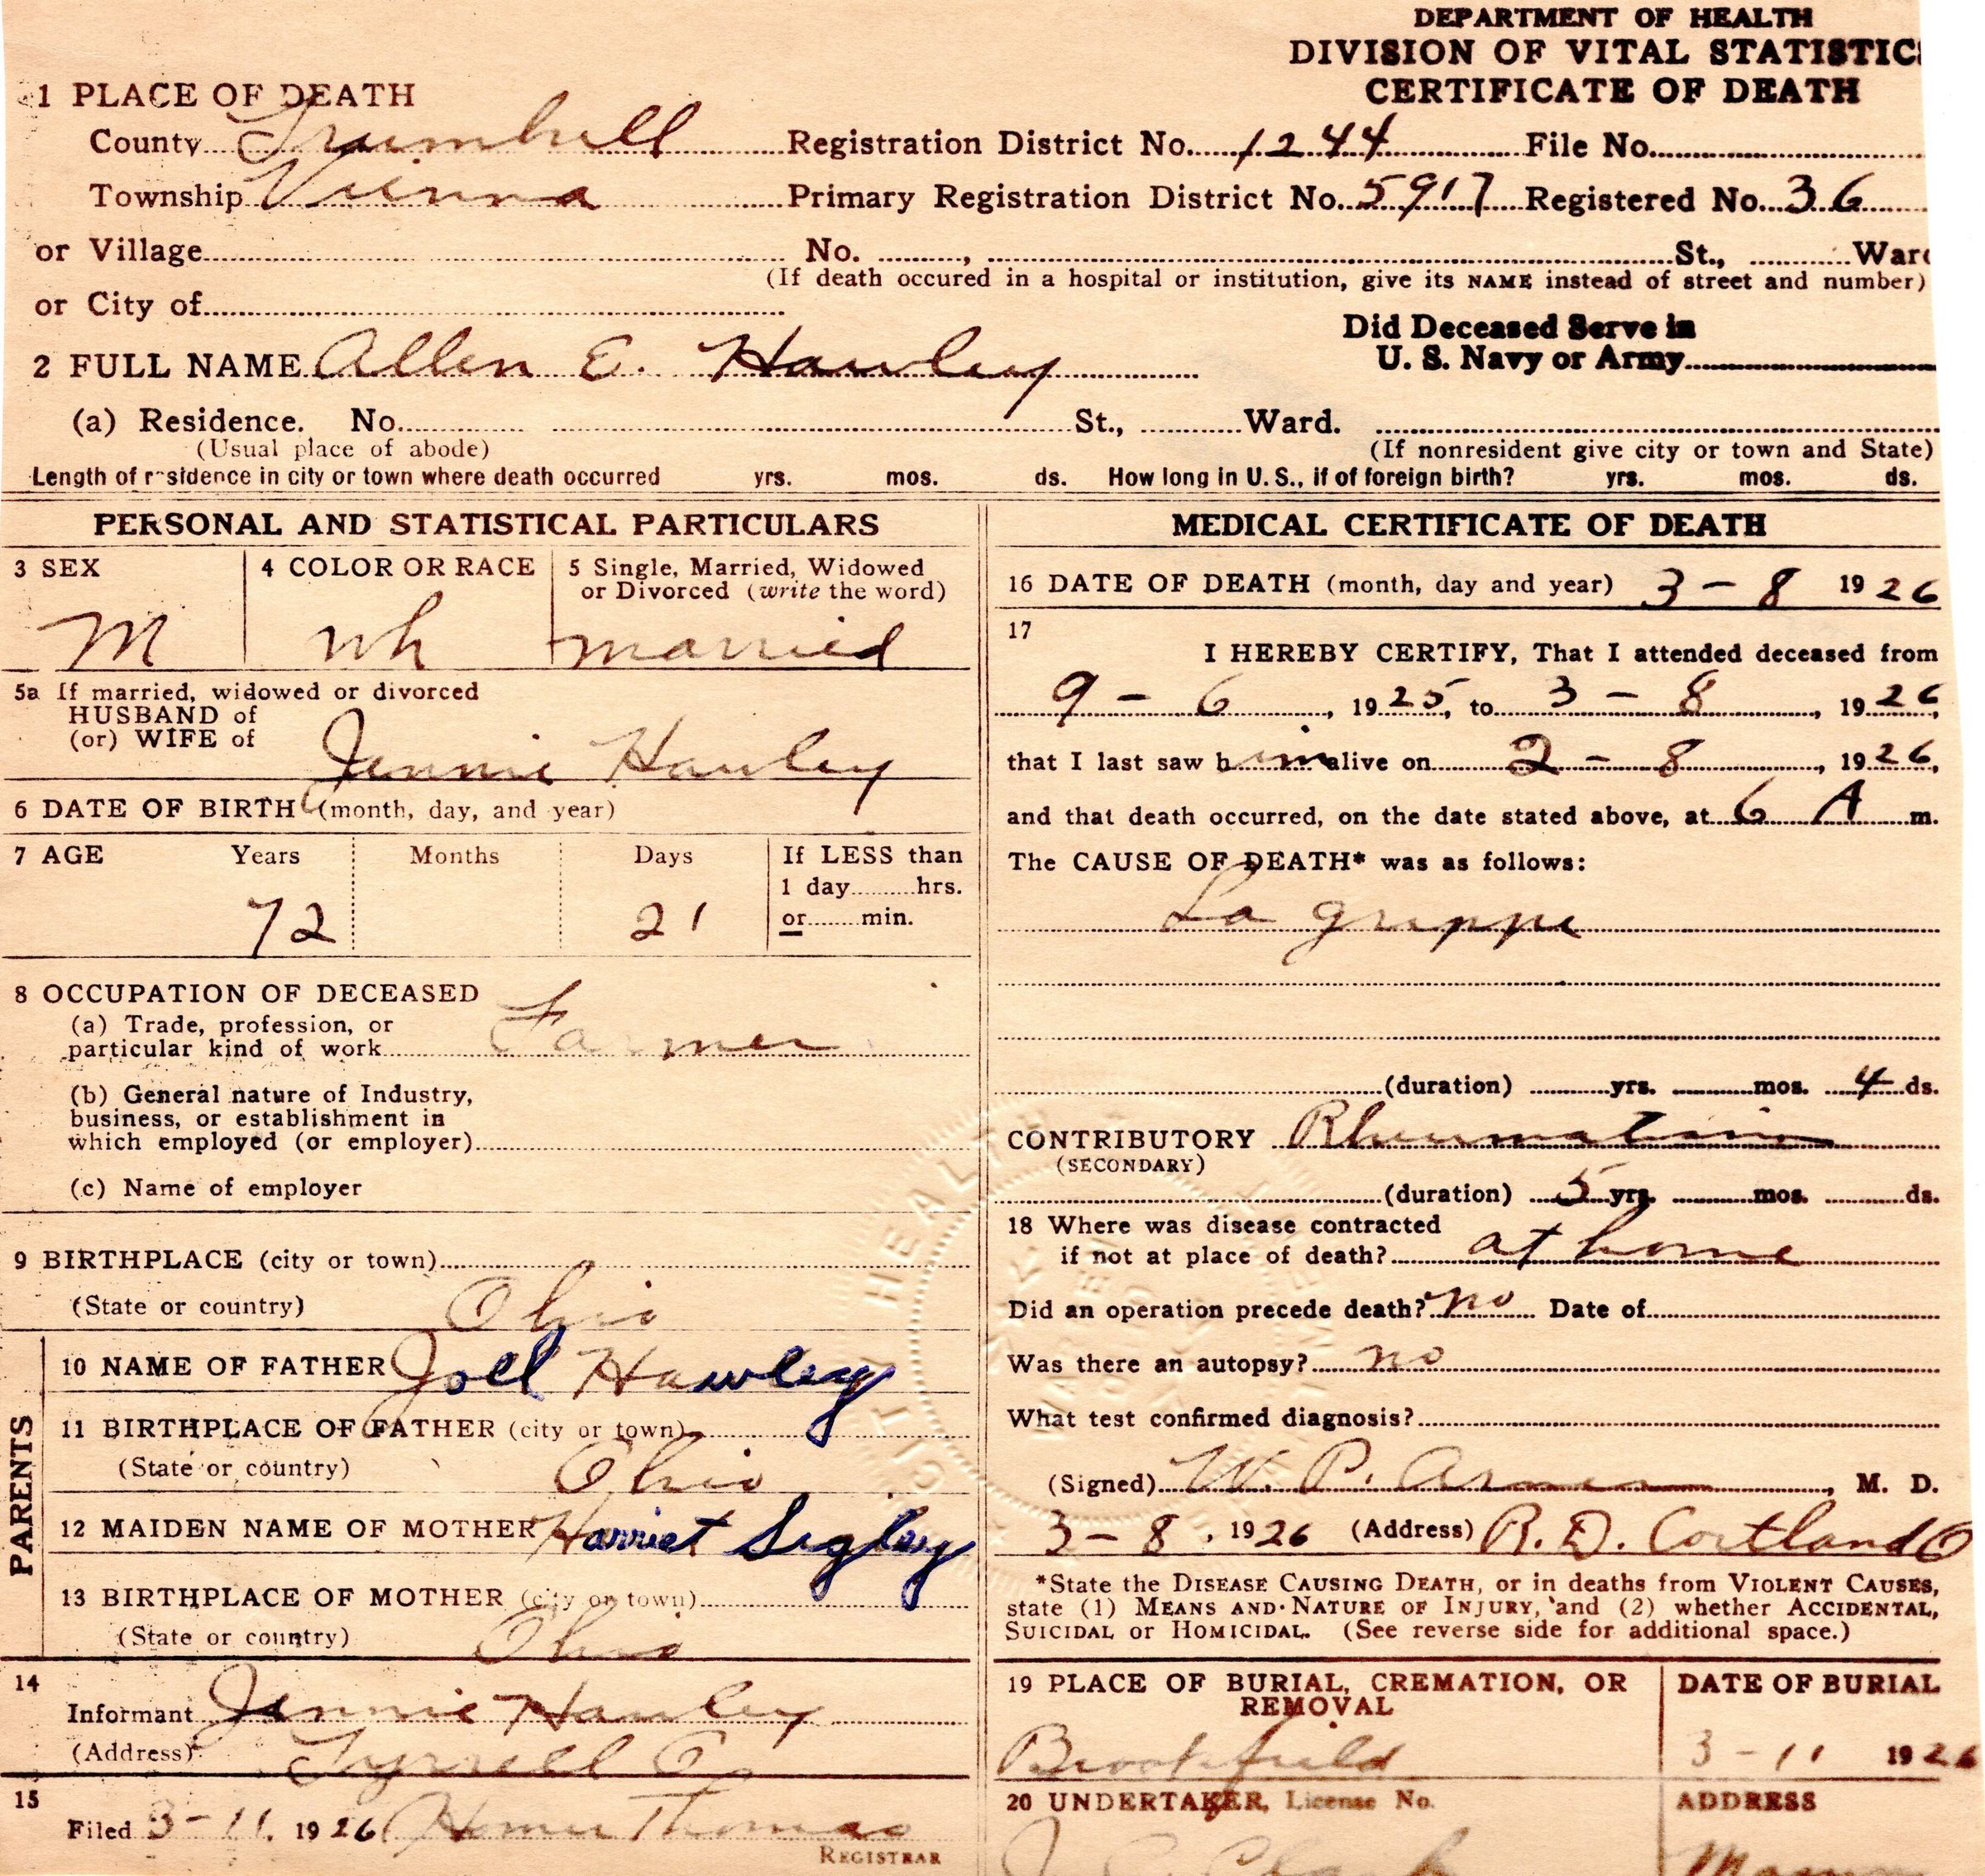 DEPARTMENT OF HEALTH
DIVISION OF VITAL STATISTICS
CERTIFICATE OF DEATH
1 PLACE OF DEATH
County Trumbull Registration District No. 1244 File No.
Township Vienna Primary Registration District No. 5917 Registered No. 36
or Village No. , St., Ward
(If death occured in a hospital or institution, give its NAME instead of street and number)
or City of
Did Deceased Serve in
U. S. Navy or Army
2 FULL NAME Allen E. Hawley
(a) Residence. No. St., Ward.
(Usual place of abode) (If nonresident give city or town and State)
Length of residence in city or town where death occurred yrs. mos. ds. How long in U. S., if of foreign birth? yrs. mos. ds.
PERSONAL AND STATISTICAL PARTICULARS
3 SEX 4 COLOR OR RACE 5 Single, Married, Widowed
or Divorced (write the word)
M wh married
5a If married, widowed or divorced
HUSBAND of
(or) WIFE of Jennie Hawley
6 DATE OF BIRTH (month, day, and year)
7 AGE Years Months Days If LESS than
1 day hrs.
or min.
72 21
8 OCCUPATION OF DECEASED
(a) Trade, profession, or
particular kind of work Farmer
(b) General nature of Industry,
business, or establishment in
which employed (or employer)
(c) Name of employer
9 BIRTHPLACE (city or town)
(State or country) Ohio
PARENTS
10 NAME OF FATHER Joel Hawley
11 BIRTHPLACE OF FATHER (city or town)
(State or country) Ohio
12 MAIDEN NAME OF MOTHER Harriet Sigley
13 BIRTHPLACE OF MOTHER (city or town)
(State or country) Ohio
14
Informant Jennie Hawley
(Address) Tyrrell O
15
Filed 3-11, 1926 Homer Thomas
REGISTRAR
MEDICAL CERTIFICATE OF DEATH
16 DATE OF DEATH (month, day and year) 3 - 8 1926
17
I HEREBY CERTIFY, That I attended deceased from
9 - 6, 1925, to 3 - 8, 1926,
that I last saw him alive on 2 - 8, 1926,
and that death occurred, on the date stated above, at 6 A m.
The CAUSE OF DEATH* was as follows:
La grippe
(duration) yrs. mos. 4 ds.
CONTRIBUTORY Rheumatism
(SECONDARY)
(duration) 5 yrs. mos. ds.
18 Where was disease contracted
if not at place of death? at home
Did an operation precede death? no Date of
Was there an autopsy? no
What test confirmed diagnosis?
(Signed) W. P. , M. D.
3 - 8, 1926 (Address) R. D. Cortland O
*State the DISEASE CAUSING DEATH, or in deaths from VIOLENT CAUSES,
state (1) MEANS AND NATURE OF INJURY, and (2) whether ACCIDENTAL,
SUICIDAL or HOMICIDAL. (See reverse side for additional space.)
19 PLACE OF BURIAL, CREMATION, OR
REMOVAL
DATE OF BURIAL
Brookfield 3 - 11 1926
20 UNDERTAKER, License No. ADDRESS